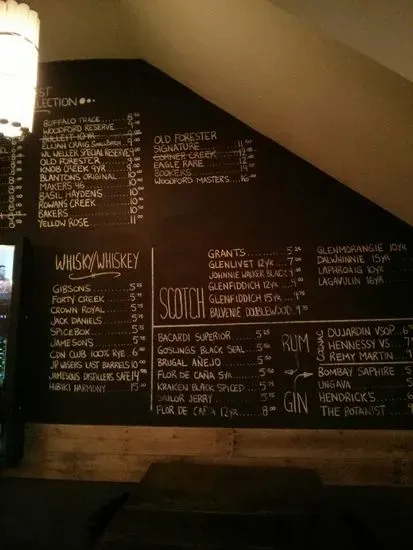 ST
LECTION
BUFFALO TRACE
WOODFORD RESERVE
BULLEIT 10YR
ELIJAH CRAIG SMALL BATCH
WL WELLER SPECIAL RESERVE
OLD FORESTER
KNOB CREEK 9YR
BLANTONS ORIGINAL
MAKERS 46
BASIL HAYDENS
ROWANS CREEK
BAKERS
YELLOW ROSE 11
OLD FORESTER
SIGNATURE 11
CORNER CREEK
EAGLE RARE
BOOKERS
WOODFORD MASTERS 16
WHISKY/WHISKEY
GIBSONS 5.25
FORTY CREEK 5.25
CROWN ROYAL 5.25
JACK DANIELS 5.25
SPICEBOX 5.25
JAMESONS 5.25
CDN CLUB 100% RYE 6
JP WISERS LAST BARRELS 10
JAMESONS DISTILLERS SAFE 14
HIBIKI HARMONY 15
SCOTCH
GRANTS 5.25
GLENLIVET 12YR 7
JOHNNIE WALKER BLACK
GLENFIDDICH 12YR
GLENFIDDICH 15YR
BALVENIE DOUBLEWOOD
GLENMORANGIE 10YR
DALWHINNIE 15YR
LAPHROAIG 10YR
LAGAVULIN 16YR
RUM
BACARDI SUPERIOR 5.25
GOSLINGS BLACK SEAL
BRUGAL AÑEJO
FLOR DE CAÑA 5YR
KRAKEN BLACK SPICED
SAILOR JERRY
FLOR DE CAÑA 12YR 8
COGNAC
DUJARDIN VSOP
HENNESSY VS
REMY MARTIN
GIN
BOMBAY SAPHIRE 5
UNGAVA
HENDRICKS
THE BOTANIST